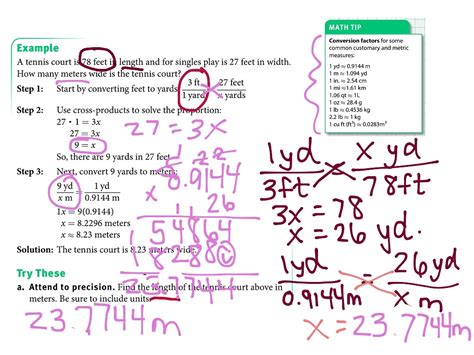 Example
A tennis court is 78 feet in length and for singles play is 27 feet in width.
How many meters wide is the tennis court?
Step 1: Start by converting feet to yards. 3 ft / 1 yard = 27 feet / x yards
Step 2: Use cross-products to solve the proportion:
27 · 1 = 3x
27 = 3x
9 = x
27 = 3x
So, there are 9 yards in 27 feet.
Step 3: Next, convert 9 yards to meters:
9 yd / x m = 1 yd / 0.9144 m
1x = 9(0.9144)
x = 8.2296 meters
x ≈ 8.23 meters
Solution: The tennis court is 8.23 meters wide.
Try These
a. Attend to precision. Find the length of the tennis court above in
meters. Be sure to include units.
23.7744m
0.9144
x 26
54864
182880
23.7744
MATH TIP
Conversion factors for some
common customary and metric
measures:
1 yd ≈ 0.9144 m
1 m ≈ 1.094 yd
1 in. ≈ 2.54 cm
1 mi ≈ 1.61 km
1.06 qt ≈ 1L
1 oz ≈ 28.4 g
1 lb ≈ 0.4536 kg
2.2 lb ≈ 1 kg
1 cu ft (ft³) ≈ 0.0283m³
1yd x yd
3ft 78ft
3x = 78
x = 26 yd.
1yd = 26yd
0.9144m x m
x = 23.7744m